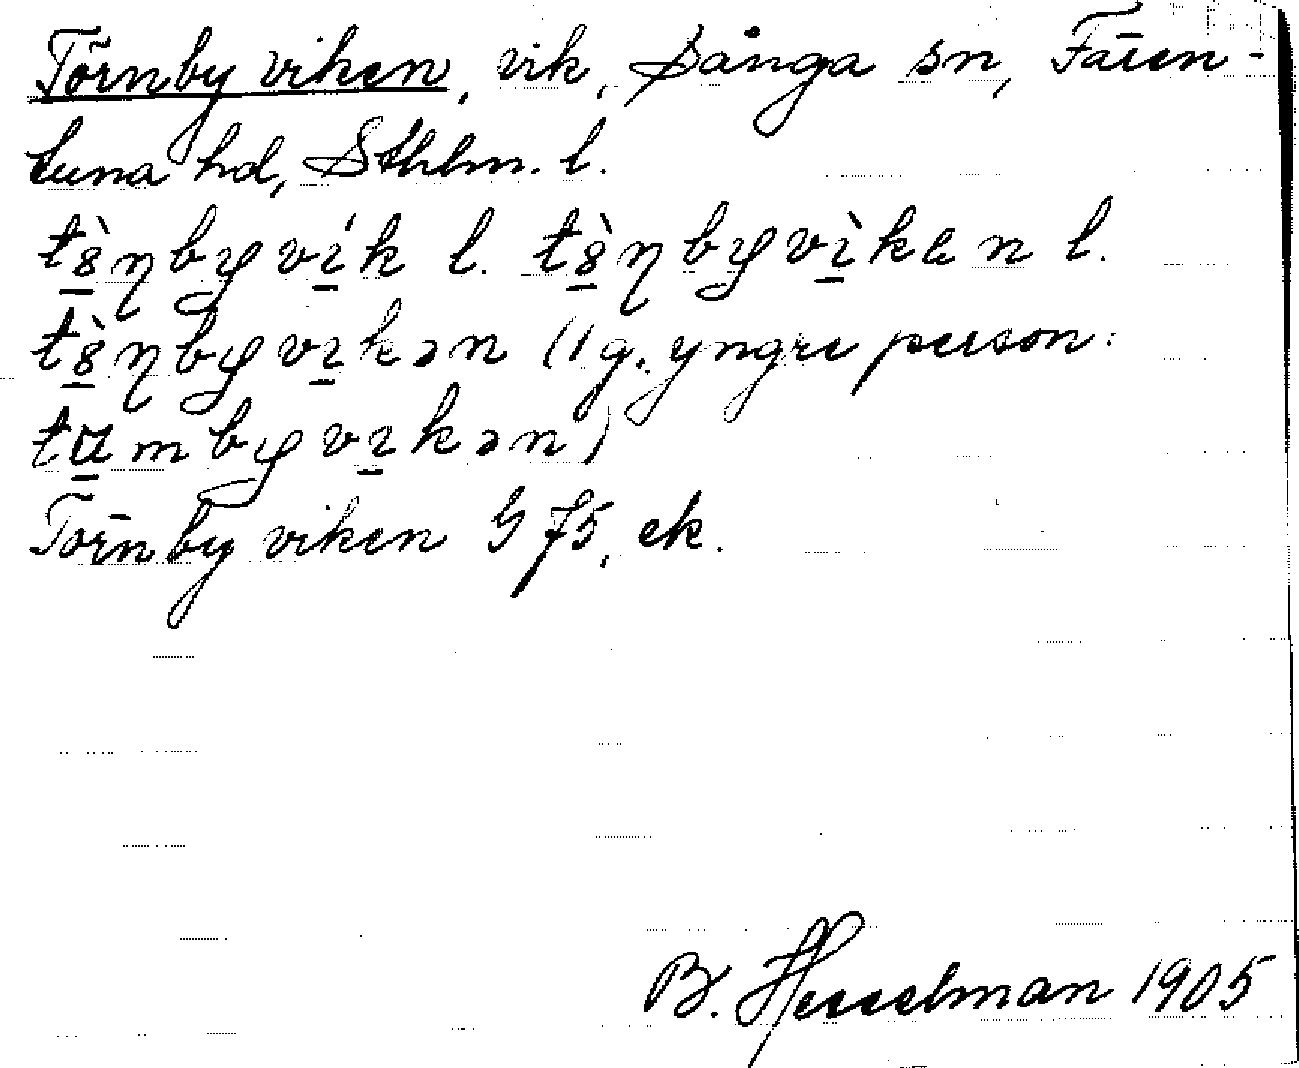 Törnby viken, vik, Sånga sn, Fären-
tuna hd, Sthlm. l.
tȣ̀ɳbyvík l. tȣ̀ɳbyvìken l.
tȣ̀ɳbyvıkən (1 g. yngre person:
tumbyvıkən)
Törnby viken G 75, ek.
B. Hesselman 1905